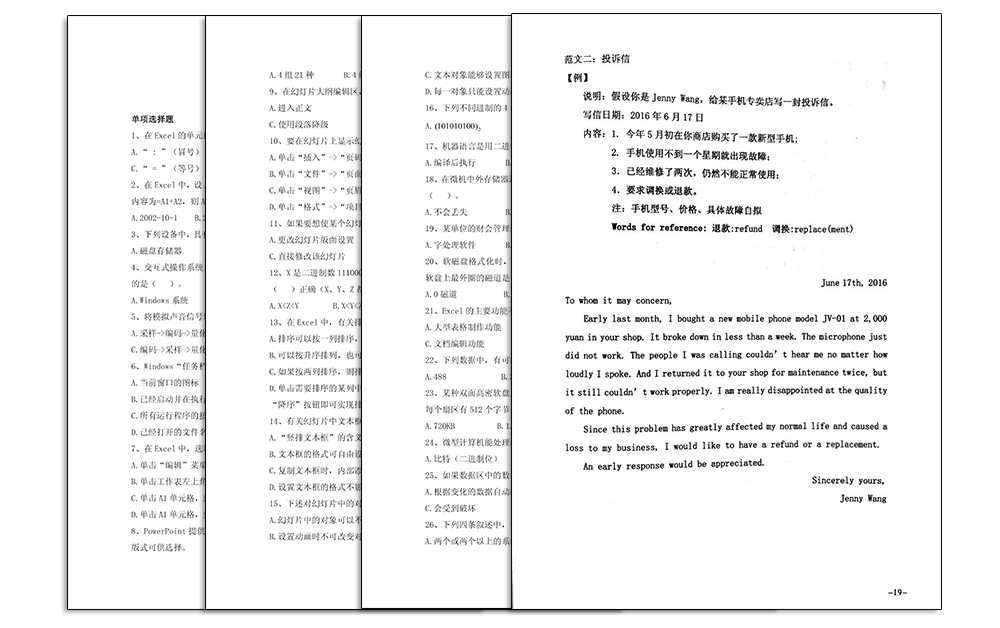 单项选择题
1、在 Excel 的单元
A.“ : ”（冒号）
C.“ = ”（等号）
2、在 Excel 中，设
内容为=A1+A2，则 A
A.2002-10-1 B.2
3、下列设备中，具
A.磁盘存储器
4、交互式操作系统
的是（ ）。
A.Windows 系统
5、将模拟声音信号
A.采样->编码->量化
C.编码->采样->量化
6、Windows “任务栏
A.当前窗口的图标
B.已经启动并在执行
C.所有运行程序的按
D.已经打开的文件名
7、在 Excel 中，选
A.单击“编辑”菜单
B.单击工作表左上角
C.单击 A1 单元格，
D.单击 A1 单元格，
8、PowerPoint 提供
版式可供选择。
A.4 组 21 种 B.4
9、在幻灯片大纲编辑区
A.进入正文
C.使用段落降级
10、要在幻灯片上显示幻
A.单击“插入”->“页码
B.单击“文件”->“页面
C.单击“视图”->“页眉
D.单击“格式”->“项目
11、如果要想使某个幻灯
A.更改幻灯片版面设置
C.直接修改该幻灯片
12、X 是二进制数 111000
（ ）正确（X、Y、Z
A.X<Z<Y B.X<Y<
13、在 Excel 中，有关排
A.排序可以按一列排序，
B.可以按升序排列，也可
C.如果按两列排序，则排
D.单击需要排序的某列中
“降序”按钮即可实现排
14、有关幻灯片中文本框
A.“竖排文本框”的含义
B.文本框的格式可自由设
C.复制文本框时，内部添
D.设置文本框的格式不影
15、下述对幻灯片中的对
A.幻灯片中的对象可以不
B.设置动画时不可改变对
C.文本对象能够设置图
D.每一对象只能设置动
16、下列不同进制的 4
A.(101010100)₂
17、机器语言是用二进
A.编译后执行 B.
18、在微机中外存储器
（ ）。
A.不会丢失 B.
19、某单位的财会管理
A.字处理软件 B.
20、软磁盘格式化时，
软盘上最外圈的磁道是
A.0 磁道 B.
21、Excel 的主要功能
A.大型表格制作功能
C.文档编辑功能
22、下列数据中，有可
A.488 B.
23、某种双面高密软盘
每个扇区有 512 个字节
A.720KB B.1.
24、微型计算机能处理
A.比特（二进制位）
25、如果数据区中的数
A.根据变化的数据自动
C.会受到破坏
26、下列四条叙述中，
A.两个或两个以上的系
范文二：投诉信
【例】
说明：假设你是 Jenny Wang，给某手机专卖店写一封投诉信。
写信日期：2016 年 6 月 17 日
内容：1. 今年 5 月初在你商店购买了一款新型手机；
2. 手机使用不到一个星期就出现故障；
3. 已经维修了两次，仍然不能正常使用；
4. 要求调换或退款。
注：手机型号、价格、具体故障自拟
Words for reference: 退款:refund 调换:replace(ment)
June 17th, 2016
To whom it may concern,
Early last month, I bought a new mobile phone model JV-01 at 2,000
yuan in your shop. It broke down in less than a week. The microphone just
did not work. The people I was calling couldn’t hear me no matter how
loudly I spoke. And I returned it to your shop for maintenance twice, but
it still couldn’t work properly. I am really disappointed at the quality
of the phone.
Since this problem has greatly affected my normal life and caused a
loss to my business, I would like to have a refund or a replacement.
An early response would be appreciated.
Sincerely yours,
Jenny Wang
-19-